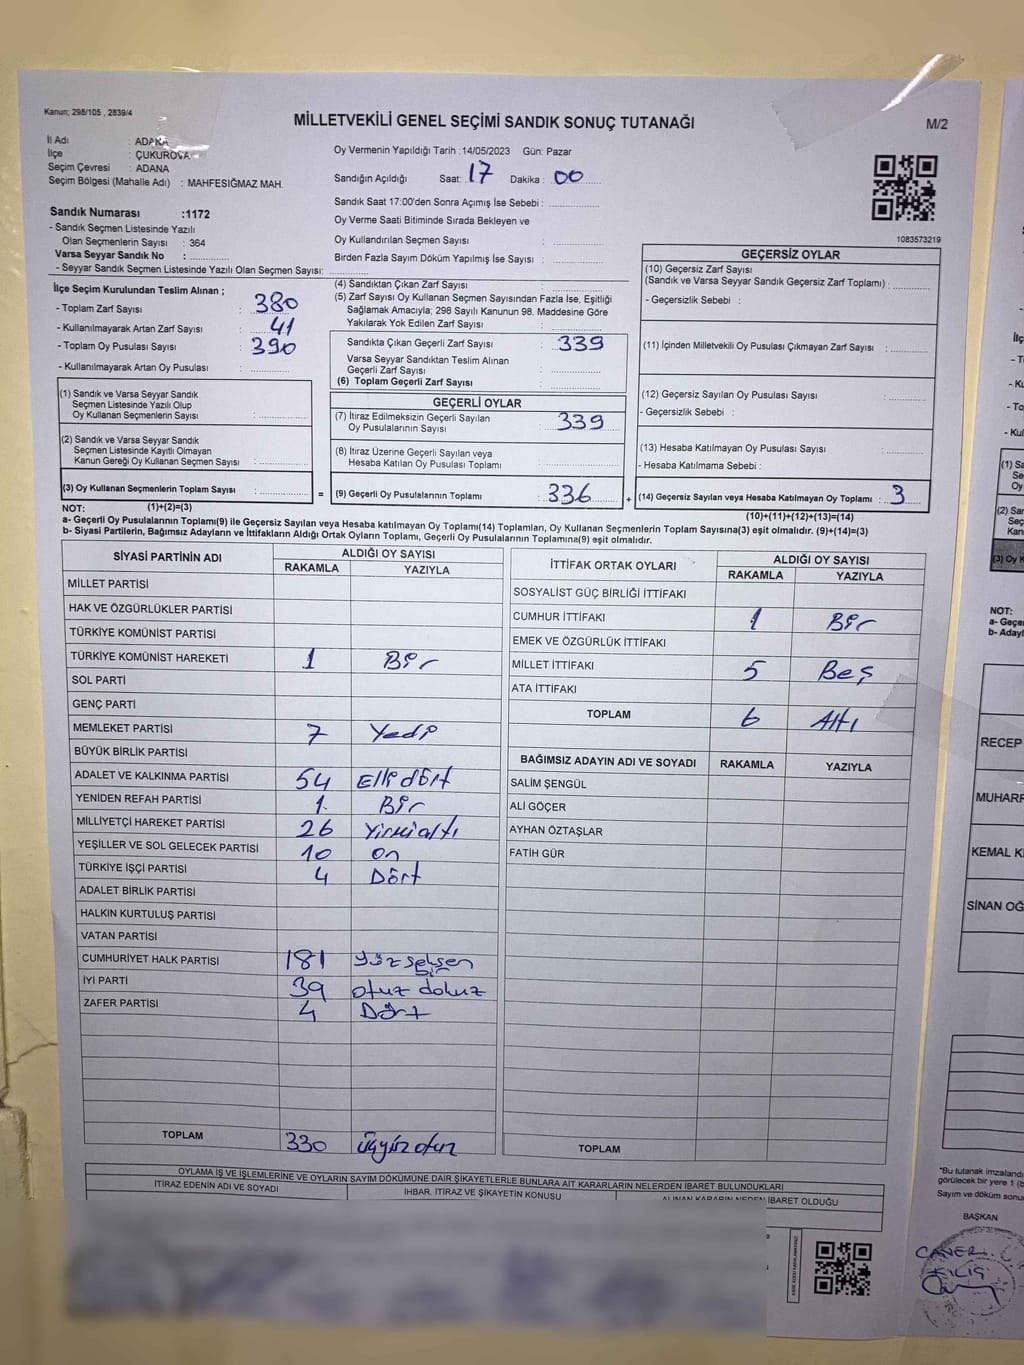 Kanun; 298/105 , 2839/4
MİLLETVEKİLİ GENEL SEÇİMİ SANDIK SONUÇ TUTANAĞI
M/2
İl Adı : ADANA
İlçe : ÇUKUROVA
Seçim Çevresi : ADANA
Seçim Bölgesi (Mahalle Adı) : MAHFESIĞMAZ MAH.
Oy Vermenin Yapıldığı Tarih :14/05/2023 Gün: Pazar
Sandığın Açıldığı Saat: 17 Dakika : 00
Sandık Saat 17:00'den Sonra Açımış İse Sebebi :
Oy Verme Saati Bitiminde Sırada Bekleyen ve
Oy Kullandırılan Seçmen Sayısı :
Birden Fazla Sayım Döküm Yapılmış İse Sayısı :
1083573219
Sandık Numarası :1172
- Sandık Seçmen Listesinde Yazılı
Olan Seçmenlerin Sayısı : 364
Varsa Seyyar Sandık No :
- Seyyar Sandık Seçmen Listesinde Yazılı Olan Seçmen Sayısı:
İlçe Seçim Kurulundan Teslim Alınan ;
- Toplam Zarf Sayısı : 380
- Kullanılmayarak Artan Zarf Sayısı : 41
- Toplam Oy Pusulası Sayısı : 390
- Kullanılmayarak Artan Oy Pusulası :
(1) Sandık ve Varsa Seyyar Sandık
Seçmen Listesinde Yazılı Olup
Oy Kullanan Seçmenlerin Sayısı :
(2) Sandık ve Varsa Seyyar Sandık
Seçmen Listesinde Kayıtlı Olmayan
Kanun Gereği Oy Kullanan Seçmen Sayısı :
(3) Oy Kullanan Seçmenlerin Toplam Sayısı :
(4) Sandıktan Çıkan Zarf Sayısı :
(5) Zarf Sayısı Oy Kullanan Seçmen Sayısından Fazla İse, Eşitliği
Sağlamak Amacıyla; 298 Sayılı Kanunun 98. Maddesine Göre
Yakılarak Yok Edilen Zarf Sayısı :
Sandıkta Çıkan Geçerli Zarf Sayısı : 339
Varsa Seyyar Sandıktan Teslim Alınan
Geçerli Zarf Sayısı :
(6) Toplam Geçerli Zarf Sayısı :
GEÇERLİ OYLAR
(7) İtiraz Edilmeksizin Geçerli Sayılan
Oy Pusulalarının Sayısı : 339
(8) İtiraz Üzerine Geçerli Sayılan veya
Hesaba Katılan Oy Pusulası Toplamı :
= (9) Geçerli Oy Pusulalarının Toplamı : 336
GEÇERSİZ OYLAR
(10) Geçersiz Zarf Sayısı
(Sandık ve Varsa Seyyar Sandık Geçersiz Zarf Toplamı) :
- Geçersizlik Sebebi :
(11) İçinden Milletvekili Oy Pusulası Çıkmayan Zarf Sayısı :
(12) Geçersiz Sayılan Oy Pusulası Sayısı :
- Geçersizlik Sebebi :
(13) Hesaba Katılmayan Oy Pusulası Sayısı :
- Hesaba Katılmama Sebebi :
+ (14) Geçersiz Sayılan veya Hesaba Katılmayan Oy Toplamı : 3
NOT: (1)+(2)=(3)
(10)+(11)+(12)+(13)=(14)
a- Geçerli Oy Pusulalarının Toplamı(9) ile Geçersiz Sayılan veya Hesaba katılmayan Oy Toplamı(14) Toplamları, Oy Kullanan Seçmenlerin Toplam Sayısına(3) eşit olmalıdır. (9)+(14)=(3)
b- Siyasi Partilerin, Bağımsız Adayların ve İttifakların Aldığı Ortak Oyların Toplamı, Geçerli Oy Pusulalarının Toplamına(9) eşit olmalıdır.
SİYASİ PARTİNİN ADI ALDIĞI OY SAYISI
RAKAMLA YAZIYLA
MİLLET PARTİSİ
HAK VE ÖZGÜRLÜKLER PARTİSİ
TÜRKİYE KOMÜNİST PARTİSİ
TÜRKİYE KOMÜNİST HAREKETİ 1 Bir
SOL PARTİ
GENÇ PARTİ
MEMLEKET PARTİSİ 7 Yedi
BÜYÜK BİRLİK PARTİSİ
ADALET VE KALKINMA PARTİSİ 54 Elli dört
YENİDEN REFAH PARTİSİ 1 Bir
MİLLİYETÇİ HAREKET PARTİSİ 26 Yirmi altı
YEŞİLLER VE SOL GELECEK PARTİSİ 10 on
TÜRKİYE İŞÇİ PARTİSİ 4 Dört
ADALET BİRLİK PARTİSİ
HALKIN KURTULUŞ PARTİSİ
VATAN PARTİSİ
CUMHURİYET HALK PARTİSİ 181 yüz seksen bir
İYİ PARTİ 39 otuz dokuz
ZAFER PARTİSİ 4 Dört
TOPLAM 330 üçyüz otuz
İTTİFAK ORTAK OYLARI ALDIĞI OY SAYISI
RAKAMLA YAZIYLA
SOSYALİST GÜÇ BİRLİĞİ İTTİFAKI
CUMHUR İTTİFAKI 1 Bir
EMEK VE ÖZGÜRLÜK İTTİFAKI
MİLLET İTTİFAKI 5 Beş
ATA İTTİFAKI
TOPLAM 6 Altı
BAĞIMSIZ ADAYIN ADI VE SOYADI RAKAMLA YAZIYLA
SALİM ŞENGÜL
ALİ GÖÇER
AYHAN ÖZTAŞLAR
FATİH GÜR
TOPLAM
OYLAMA İŞ VE İŞLEMLERİNE VE OYLARIN SAYIM DÖKÜMÜNE DAİR ŞİKAYETLERLE BUNLARA AİT KARARLARIN NELERDEN İBARET BULUNDUKLARI
İTİRAZ EDENİN ADI VE SOYADI İHBAR, İTİRAZ VE ŞİKAYETİN KONUSU ALINAN KARARIN NEDEN İBARET OLDUĞU
NOT:
RECEP
SİNAN OĞ
"Bu tutanak imzalandı
görülecek bir yere 1 (b
Sayım ve döküm sonu
BAŞKAN